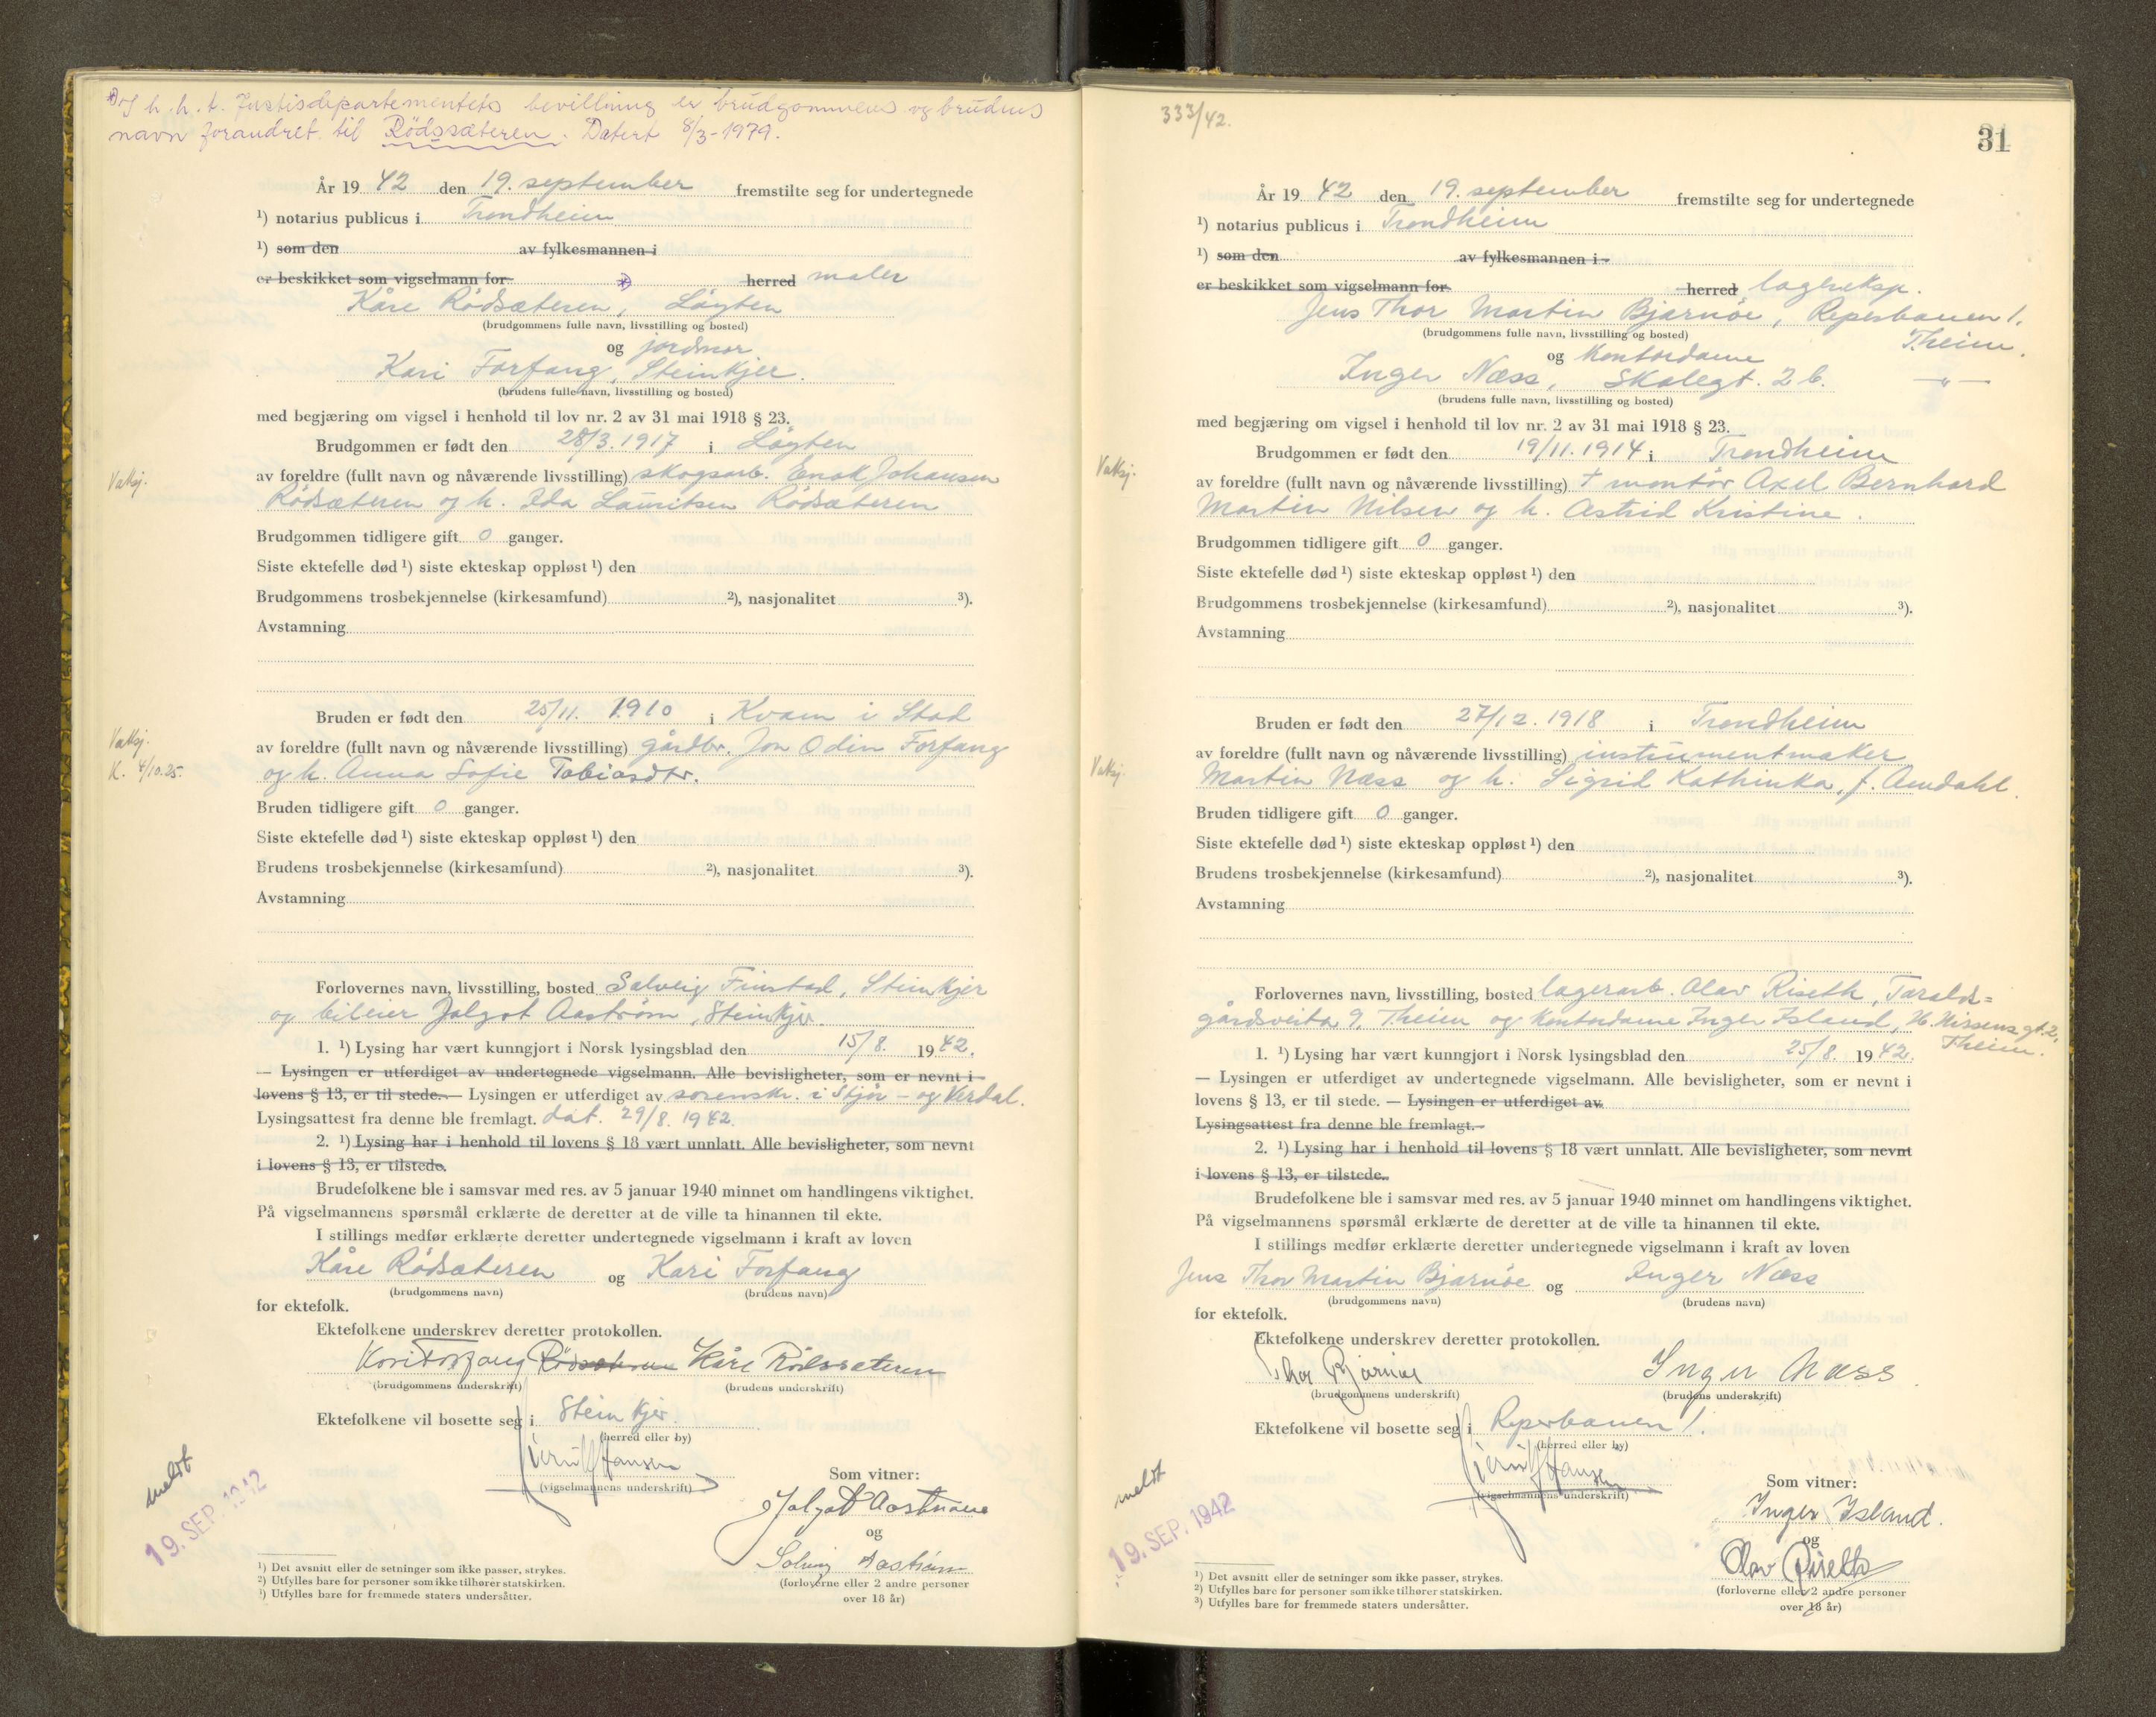 *) I h.h.t. Justisdepartementets bevillning er brudgommens og brudens
navn forandret til Rödssæteren. Datert 8/3-1979.
År 1942 den 19. september fremstilte seg for undertegnede
¹) notarius publicus i Trondheim
¹) som den av fylkesmannen i
er beskikket som vigselmann for *) herred maler
Kåre Rödsæteren, Löyten
(brudgommens fulle navn, livsstilling og bosted)
og jordmor
Kari Forfang, Steinkjer.
(brudens fulle navn, livsstilling og bosted)
med begjæring om vigsel i henhold til lov nr. 2 av 31 mai 1918 § 23.
Brudgommen er født den 28/3.1917 i Löyten
Vaksj.
av foreldre (fullt navn og nåværende livsstilling) skogsarb. Enok Johansen
Rödsæteren og h. Ida Lauritsen Rödsæteren
Brudgommen tidligere gift 0 ganger.
Siste ektefelle død ¹) siste ekteskap oppløst ¹) den
Brudgommens trosbekjennelse (kirkesamfund) ²), nasjonalitet ³).
Avstamning
Bruden er født den 25/11. 1910 i Kvam i Stod
Vaksj.
av foreldre (fullt navn og nåværende livsstilling) gårdbr. Jon Odin Forfang
K. 4/10.25.
og h. Anna Sofie Tobiasdtr.
Bruden tidligere gift 0 ganger.
Siste ektefelle død ¹) siste ekteskap oppløst ¹) den
Brudens trosbekjennelse (kirkesamfund) ²), nasjonalitet ³).
Avstamning
Forlovernes navn, livsstilling, bosted Solveig Finstad, Steinkjer
og bileier Jalgot Aastrøm, Steinkjer.
1. ¹) Lysing har vært kunngjort i Norsk lysingsblad den 15/8. 1942.
— Lysingen er utferdiget av undertegnede vigselmann. Alle bevisligheter, som er nevnt i
lovens § 13, er til stede. — Lysingen er utferdiget av sorenskr. i Stjør- og Verdal.
Lysingsattest fra denne ble fremlagt. dat. 29/8. 1942.
2. ¹) Lysing har i henhold til lovens § 18 vært unnlatt. Alle bevisligheter, som nevnt
i lovens § 13, er tilstede.
Brudefolkene ble i samsvar med res. av 5 januar 1940 minnet om handlingens viktighet.
På vigselmannens spørsmål erklærte de deretter at de ville ta hinannen til ekte.
I stillings medfør erklærte deretter undertegnede vigselmann i kraft av loven
Kåre Rödsæteren og Kari Forfang
(brudgommens navn) (brudens navn)
for ektefolk.
Ektefolkene underskrev deretter protokollen.
Kari Forfang Rödsæteren Kåre Rödssæteren
(brudgommens underskrift) (brudens underskrift)
Ektefolkene vil bosette seg i Steinkjer.
(herred eller by)
Hansen
(vigselmannens underskrift)
Som vitner:
Jalgot Aastrøm
og
Solveig Aastrøm
(forloverne eller 2 andre personer
over 18 år)
meldt
19. SEP. 1942
¹) Det avsnitt eller de setninger som ikke passer, strykes.
²) Utfylles bare for personer som ikke tilhører statskirken.
³) Utfylles bare for fremmede staters undersåtter.
333/42.
31
År 1942 den 19. september fremstilte seg for undertegnede
¹) notarius publicus i Trondheim
¹) som den av fylkesmannen i
er beskikket som vigselmann for herred lagereksp.
Jens Thor Martin Bjarnöe, Reperbanen 1.
(brudgommens fulle navn, livsstilling og bosted) Theim.
og kontordame
Inger Næss, Skolegt. 2 b. —"—
(brudens fulle navn, livsstilling og bosted)
med begjæring om vigsel i henhold til lov nr. 2 av 31 mai 1918 § 23.
Brudgommen er født den 19/11.1914 i Trondheim
Vaksj.
av foreldre (fullt navn og nåværende livsstilling) † montör Axel Bernhard
Martin Nilsen og h. Astrid Kristine.
Brudgommen tidligere gift 0 ganger.
Siste ektefelle død ¹) siste ekteskap oppløst ¹) den
Brudgommens trosbekjennelse (kirkesamfund) ²), nasjonalitet ³).
Avstamning
Bruden er født den 27/12.1918 i Trondheim
av foreldre (fullt navn og nåværende livsstilling) instrumentmaker
Vaksj.
Martin Næss og h. Sigrid Kathinka, f. Amdahl.
Bruden tidligere gift 0 ganger.
Siste ektefelle død ¹) siste ekteskap oppløst ¹) den
Brudens trosbekjennelse (kirkesamfund) ²), nasjonalitet ³).
Avstamning
Forlovernes navn, livsstilling, bosted lagerarb. Olav Riseth, Taralds=
gårdsveita 9, Theim og kontordame Inger Island, H. Nissens gt. 2,
Theim.
1. ¹) Lysing har vært kunngjort i Norsk lysingsblad den 25/8. 1942.
— Lysingen er utferdiget av undertegnede vigselmann. Alle bevisligheter, som er nevnt i
lovens § 13, er til stede. — Lysingen er utferdiget av
Lysingsattest fra denne ble fremlagt.
2. ¹) Lysing har i henhold til lovens § 18 vært unnlatt. Alle bevisligheter, som nevnt
i lovens § 13, er tilstede.
Brudefolkene ble i samsvar med res. av 5 januar 1940 minnet om handlingens viktighet.
På vigselmannens spørsmål erklærte de deretter at de ville ta hinannen til ekte.
I stillings medfør erklærte deretter undertegnede vigselmann i kraft av loven
Jens Thor Martin Bjarnöe og Inger Næss
(brudgommens navn) (brudens navn)
for ektefolk.
Ektefolkene underskrev deretter protokollen.
Thor Bjarnöe Inger Næss
(brudgommens underskrift) (brudens underskrift)
Ektefolkene vil bosette seg i Reperbanen 1.
(herred eller by)
Hansen
(vigselmannens underskrift)
Som vitner:
Inger Island.
og
Olav Riseth
(forloverne eller 2 andre personer
over 18 år)
meldt
19. SEP. 1942
¹) Det avsnitt eller de setninger som ikke passer, strykes.
²) Utfylles bare for personer som ikke tilhører statskirken.
³) Utfylles bare for fremmede staters undersåtter.